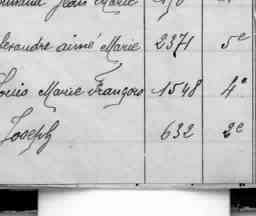 Jean Marie
Alexandre aimé Marie 2371 5e
Louis Marie François 1548 4e
Joseph 632 2e